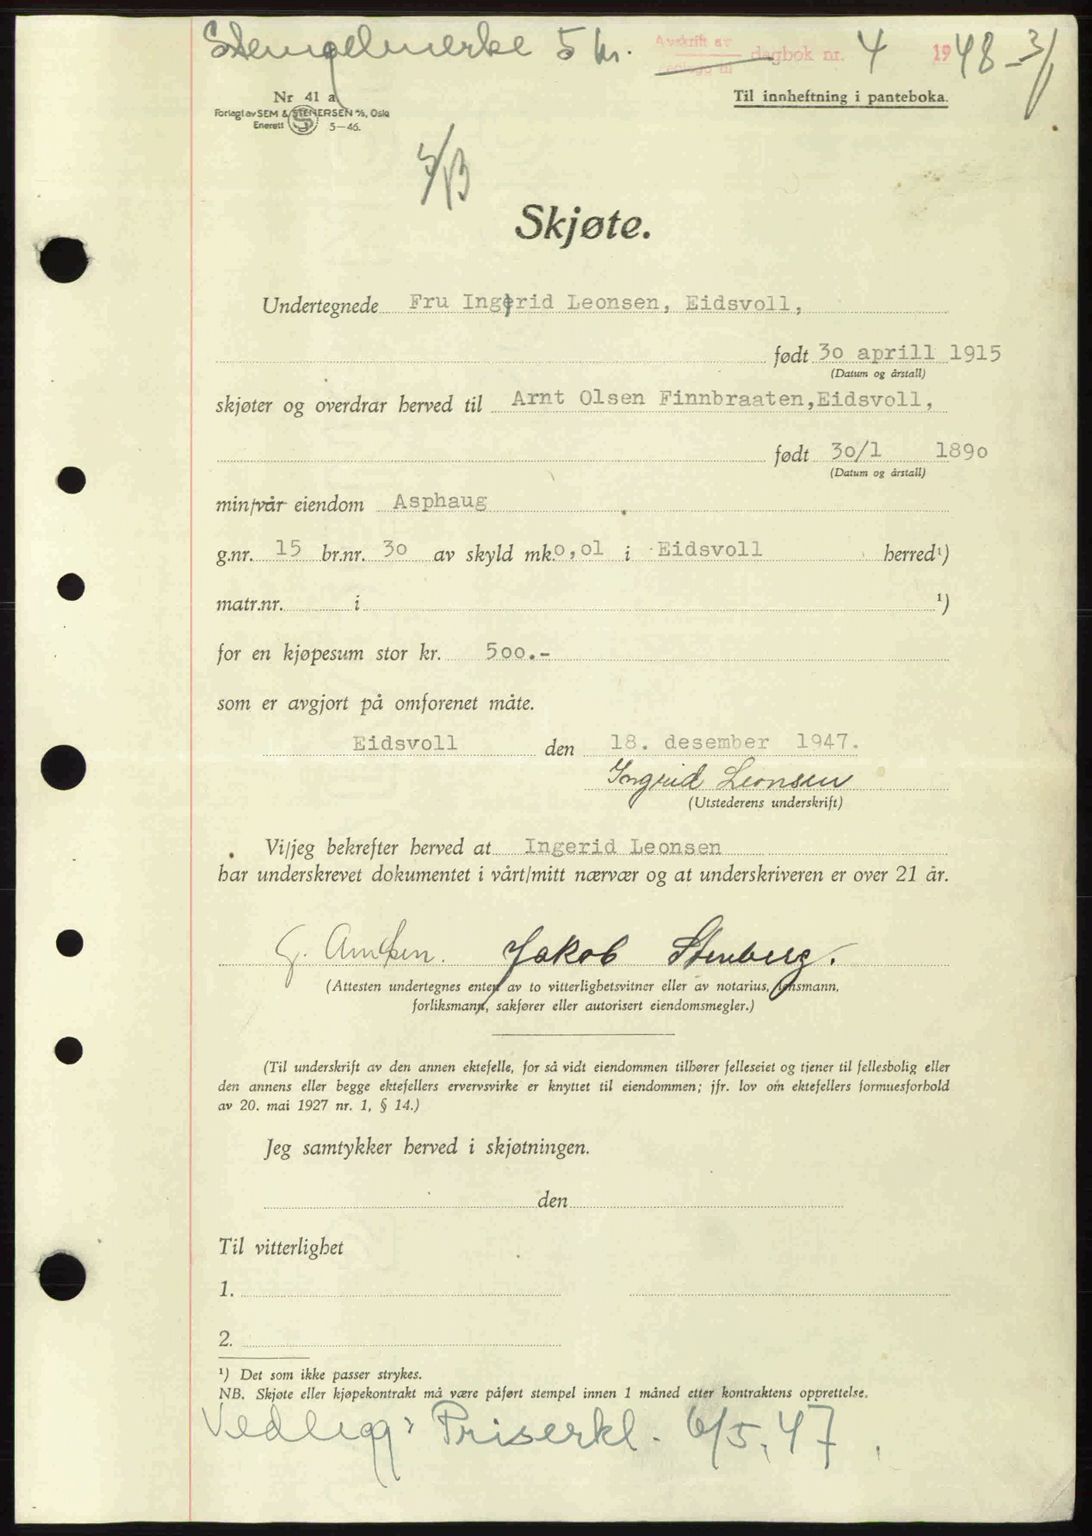 Stempelmerke 5 kr.
Avskrift av
dagbok nr. 4 1948 - 3/1
Nr 41 a
Til innheftning i panteboka.
Forlagt av SEM & STENERSEN A/S, Oslo
Enerett S 5—46.
Skjøte.
Undertegnede Fru Ingerid Leonsen, Eidsvoll,
født 30 aprill 1915
(Datum og årstall)
skjøter og overdrar herved til Arnt Olsen Finnbraaten,Eidsvoll,
født 30/1 1890
(Datum og årstall)
min/vår eiendom Asphaug
g.nr. 15 br.nr. 30 av skyld mk. 0,01 i Eidsvoll herred¹)
matr.nr. i ¹)
for en kjøpesum stor kr. 500.-
som er avgjort på omforenet måte.
Eidsvoll den 18. desember 1947.
Ingrid Leonsen
(Utstederens underskrift)
Vi/jeg bekrefter herved at Ingerid Leonsen
har underskrevet dokumentet i vårt/mitt nærvær og at underskriveren er over 21 år.
Jakob Stenberg.
(Attesten undertegnes enten av to vitterlighetsvitner eller av notarius, lensmann,
forliksmann, sakfører eller autorisert eiendomsmegler.)
(Til underskrift av den annen ektefelle, for så vidt eiendommen tilhører felleseiet og tjener til fellesbolig eller
den annens eller begge ektefellers ervervsvirke er knyttet til eiendommen; jfr. lov om ektefellers formuesforhold
av 20. mai 1927 nr. 1, § 14.)
Jeg samtykker herved i skjøtningen.
den
Til vitterlighet
1.
2.
¹) Det som ikke passer strykes.
NB. Skjøte eller kjøpekontrakt må være påført stempel innen 1 måned etter kontraktens opprettelse.
Vedlegg: Priserkl. 6/5.47